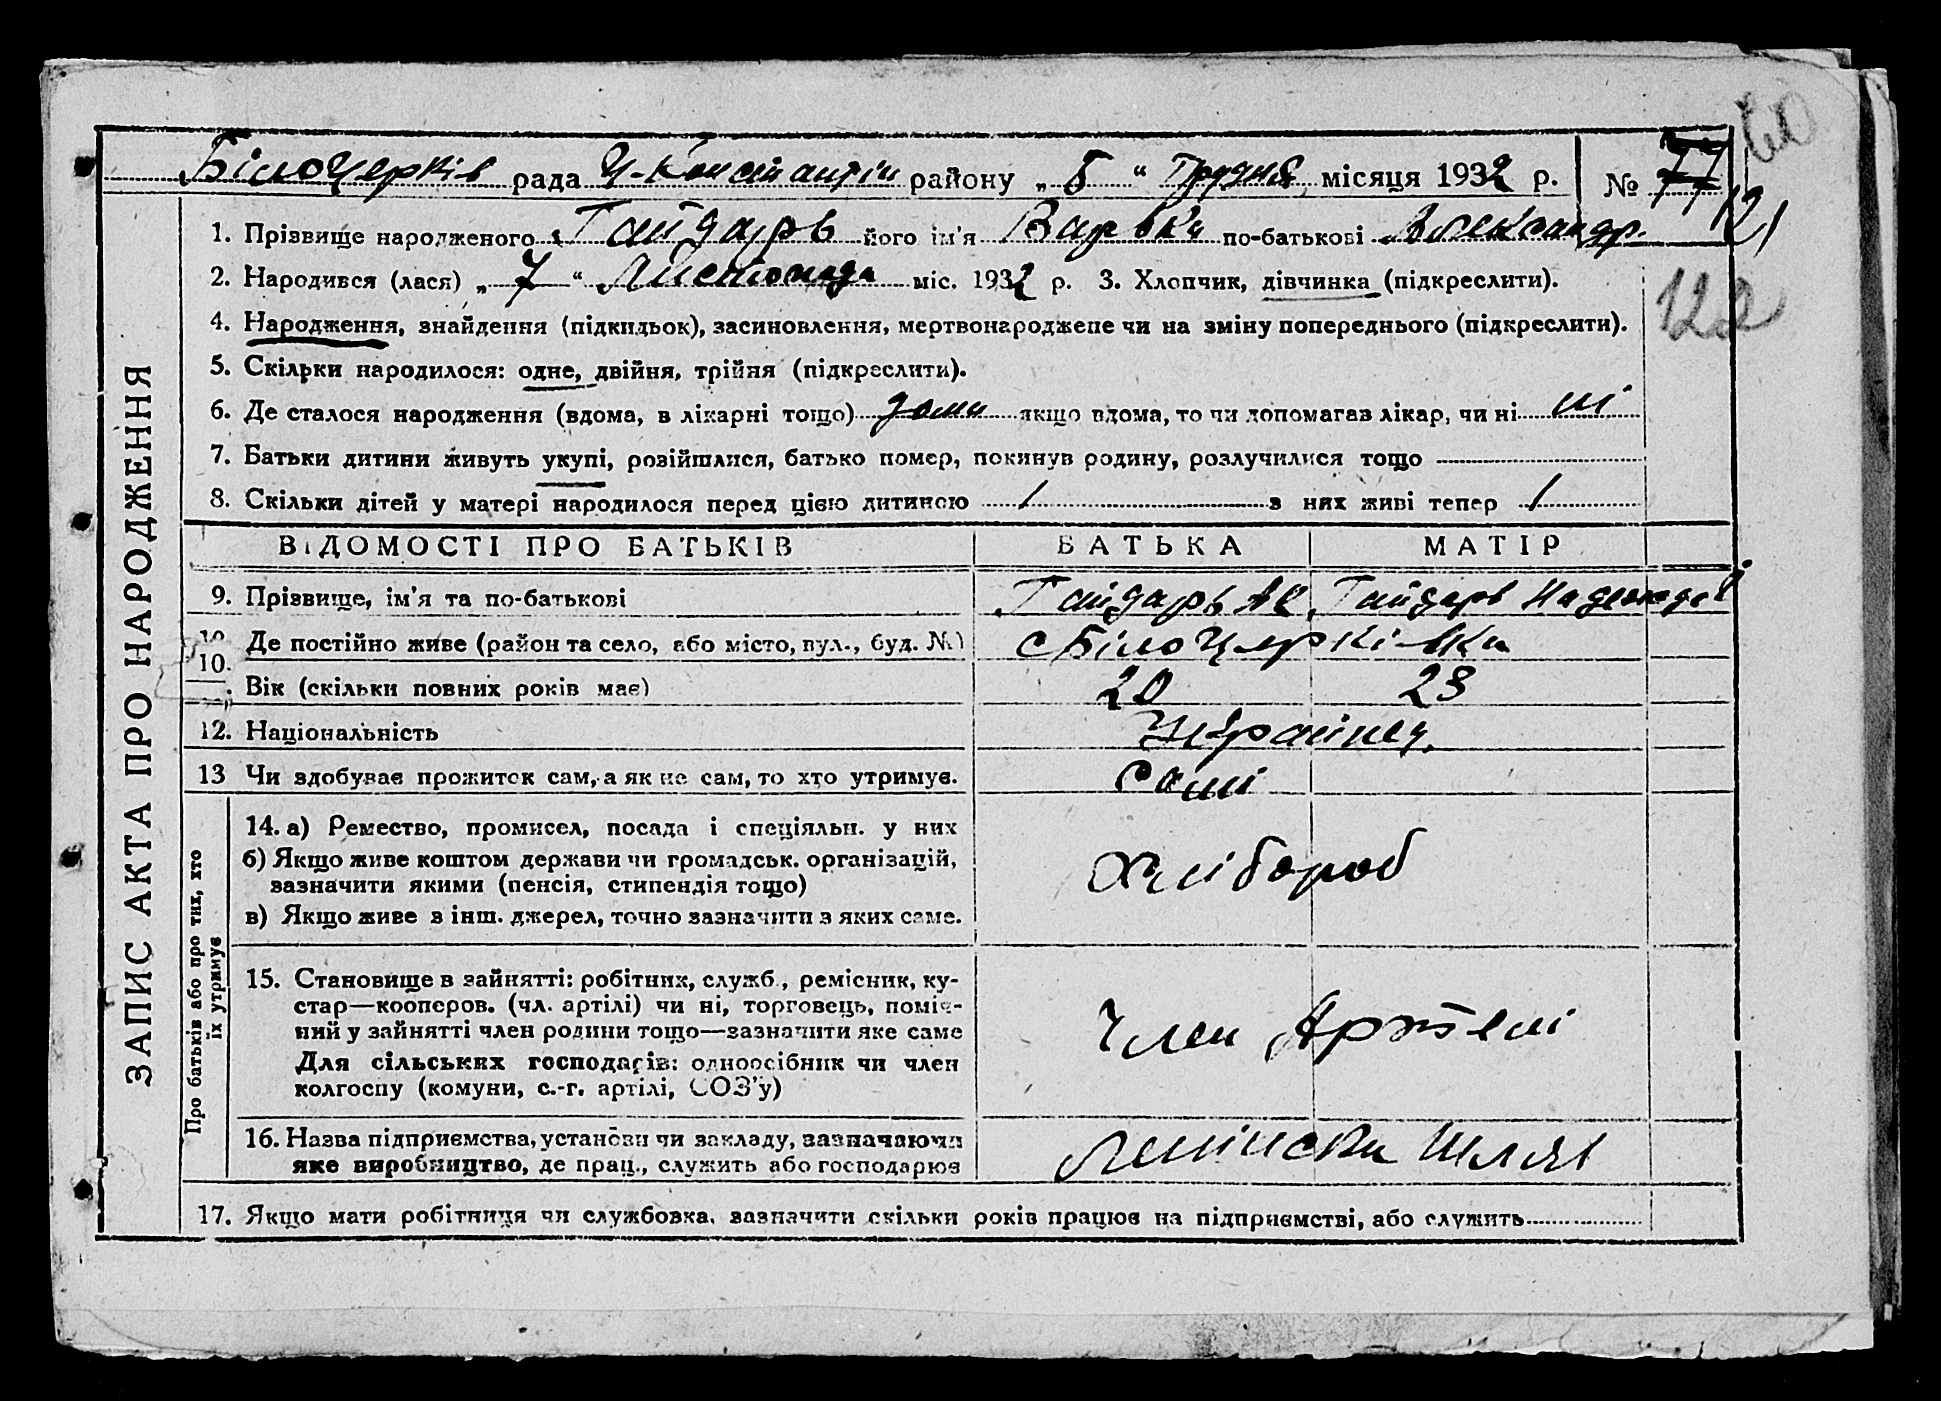 60
Білоцерків рада Ч-Констянтін району „ 5 “ Грудня місяця 1932 р. № 77
121
1. Прізвище народженого Гайдарь його ім'я Варвка по-батькові Александр.
2. Народився (лася) „ 7 “ Листопада міс. 1932 р. 3. Хлопчик, дівчинка (підкреслити).
122
4. Народження, знайдення (підкидьок), засиновлення, мертвонароджене чи на зміну попереднього (підкреслити).
5. Скільки народилося: одне, двійня, трійня (підкреслити).
6. Де сталося народження (вдома, в лікарні тощо) дома якщо вдома, то чи допомагав лікар, чи ні ні
7. Батьки дитини живуть укупі, розвійшлися, батько помер, покинув родину, розлучилися тощо
8. Скільки дітей у матері народилося перед цією дитиною 1 з них живі тепер 1
ВІДОМОСТІ ПРО БАТЬКІВ БАТЬКА МАТІР
9. Прізвище, ім'я та по-батькові Гайдарь Ал Гайдарь Надежда
10. Де постійно живе (район та село, або місто, вул., буд. №) с Білоцерківка
Вік (скільки повних років має) 20 23
12. Національність Українец.
13 Чи здобуває прожиток сам, а як не сам, то хто утримує. Самі
14. а) Ремество, промисел, посада і спеціяльн. у них
б) Якщо живе коштом держави чи громадськ. організацій,
зазначити якими (пенсія, стипендія тощо) Хлібороб
в) Якщо живе з інш. джерел, точно зазначити з яких саме.
15. Становище в зайнятті: робітник, служб., ремісник, ку-
стар—кооперов. (чл. артілі) чи ні, торговець, поміч-
ний у зайнятті член родини тощо—зазначити яке саме Член Артелі
Для сільських господарів: одноосібник чи член
колгоспу (комуни, с.-г. артілі, СОЗ'у)
16. Назва підприємства, установи чи закладу, зазначаючи Ленінски Шлях
яке виробництво, де прац., служить або господарює
17. Якщо мати робітниця чи службовка, зазначити скільки років працює на підприємстві, або служить
ЗАПИС АКТА ПРО НАРОДЖЕННЯ
Про батьків або про тих, хто
їх утримує